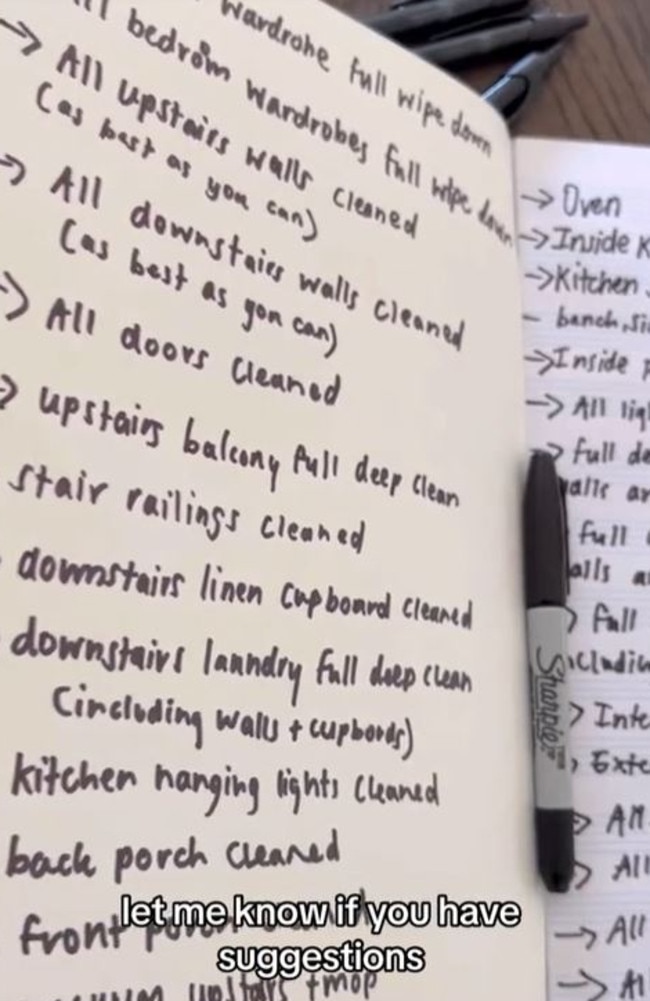 wardrobe full wipe down
bedroom wardrobes full wipe down
→ All upstairs walls cleaned
(as best as you can)
→ All downstairs walls cleaned
(as best as you can)
→ All doors cleaned
→ upstairs balcony full deep clean
stair railings cleaned
downstairs linen cupboard cleaned
downstairs laundry full deep clean
(including walls + cupbords)
kitchen hanging lights cleaned
back porch cleaned
front porch
upstairs + mop
→ Oven
→ Inside K
→ Kitchen
- bench, si
→ Inside
→ All lig
→ full de
walls ar
full
alls a
full
includin
→ Inte
→ Exte
→ All
→ All
→ All
→ Al
Sharpie
let me know if you have
suggestions